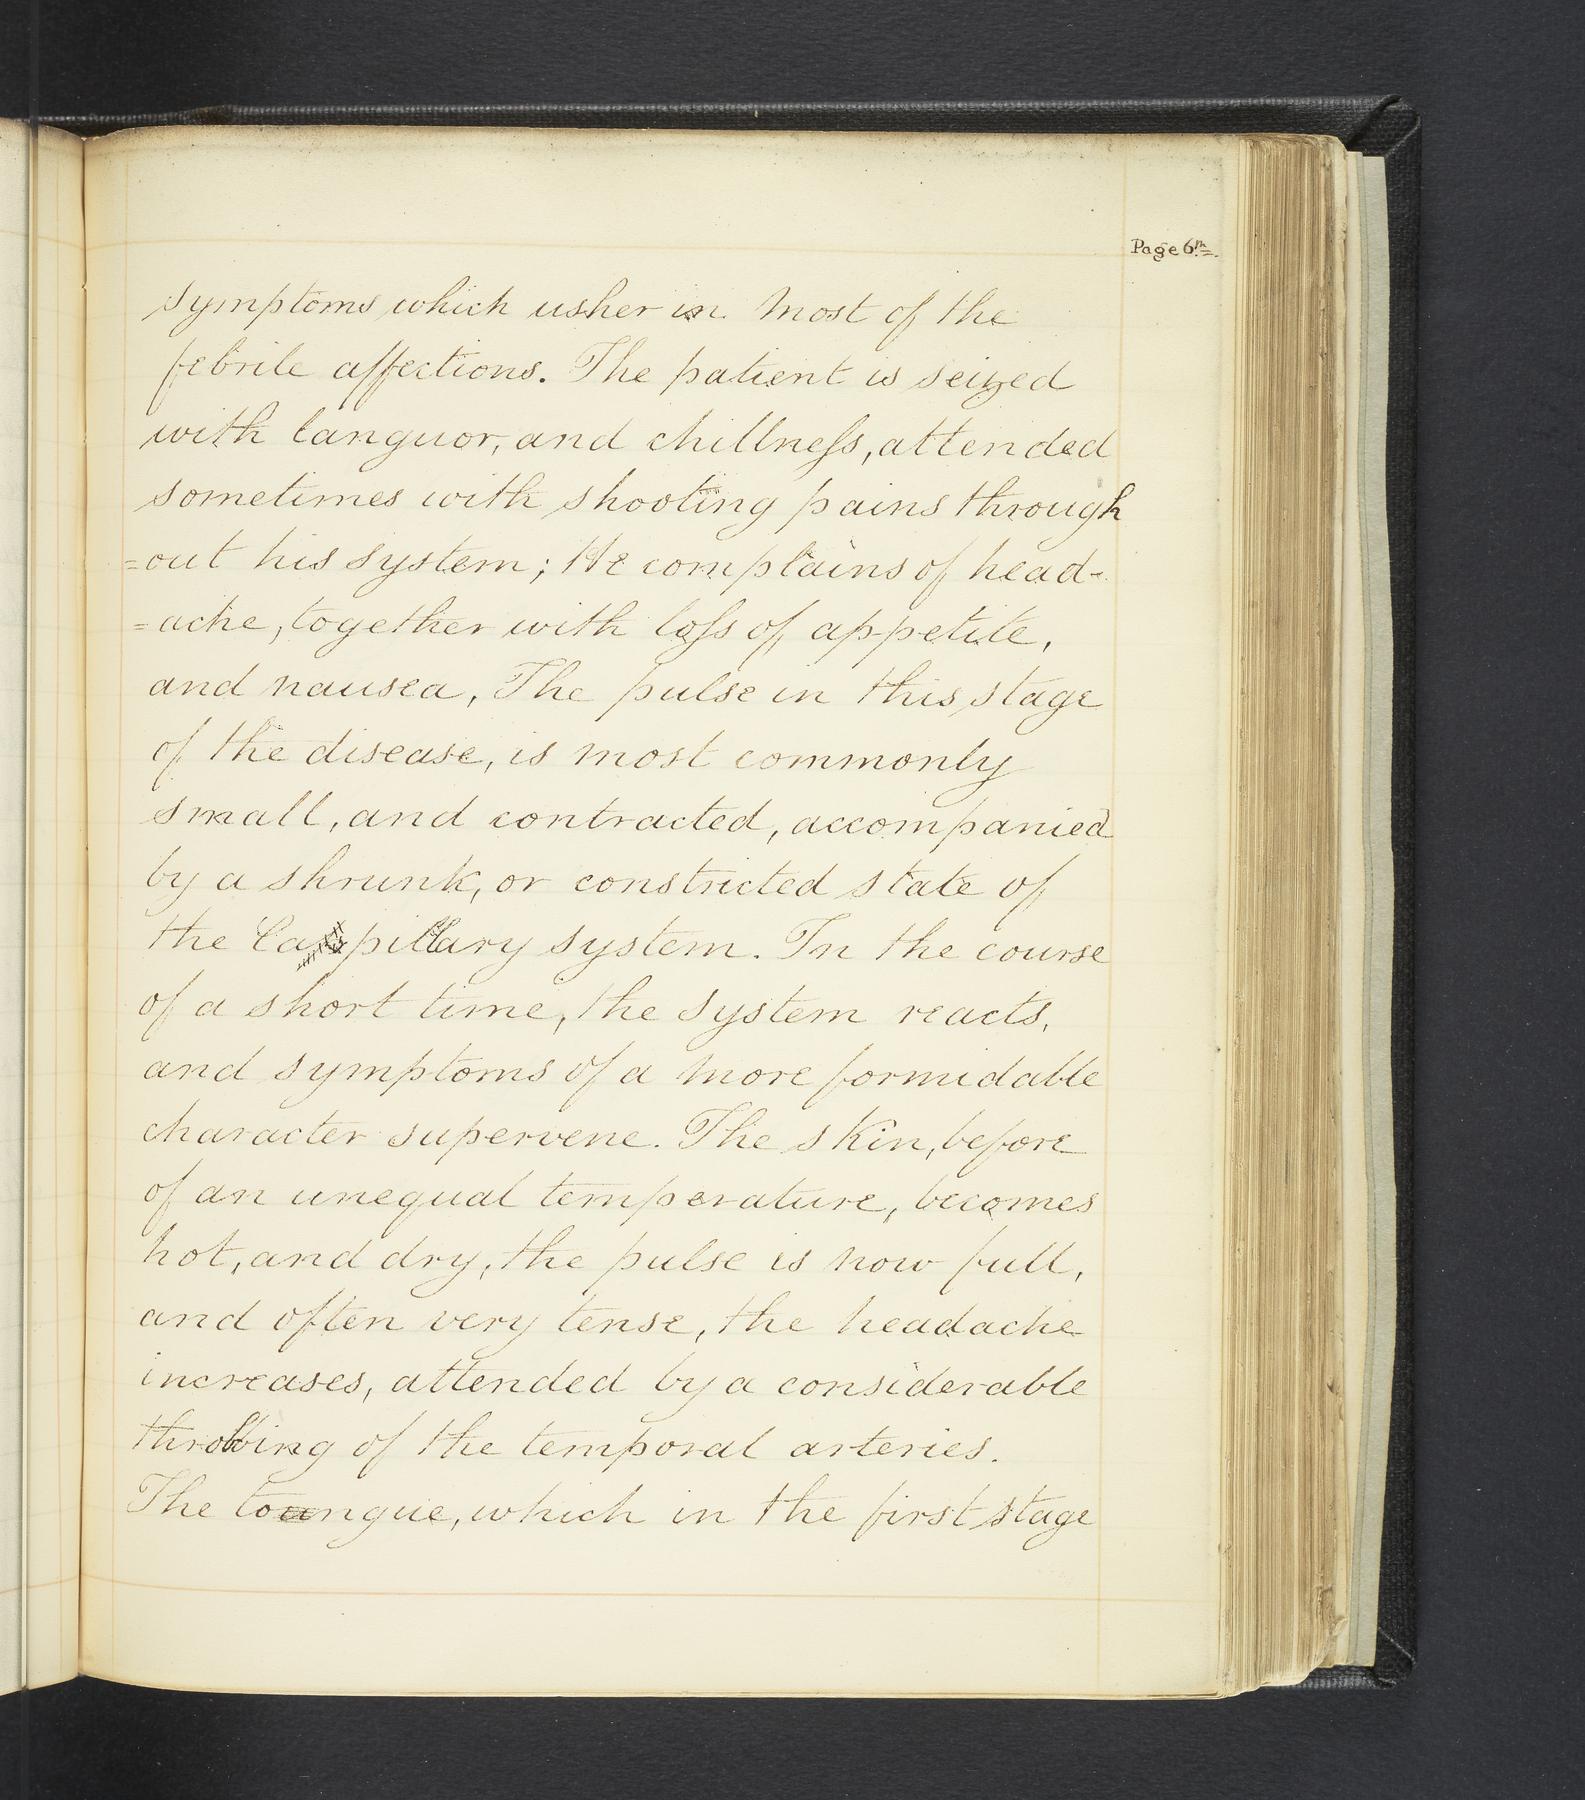 Page 6th
symptoms which usher in most of the
febrile affections. The patient is seized
with languor, and chillneſs, attended
sometimes with shooting pains through
=out his system; He complains of head-
=ache, together with loſs of appetite,
and nausea, The pulse in this stage
of the disease, is most commonly
small, and contracted, accompanied
by a shrunk, or constricted state of
the Capillary system. In the course
of a short time, the system reacts,
and symptoms of a more formidable
character supervene. The skin, before
of an unequal temperature, becomes
hot, and dry, the pulse is now full,
and often very tense, the headache
increases, attended by a considerable
throbbing of the temporal arteries.
The toungue, which in the first stage